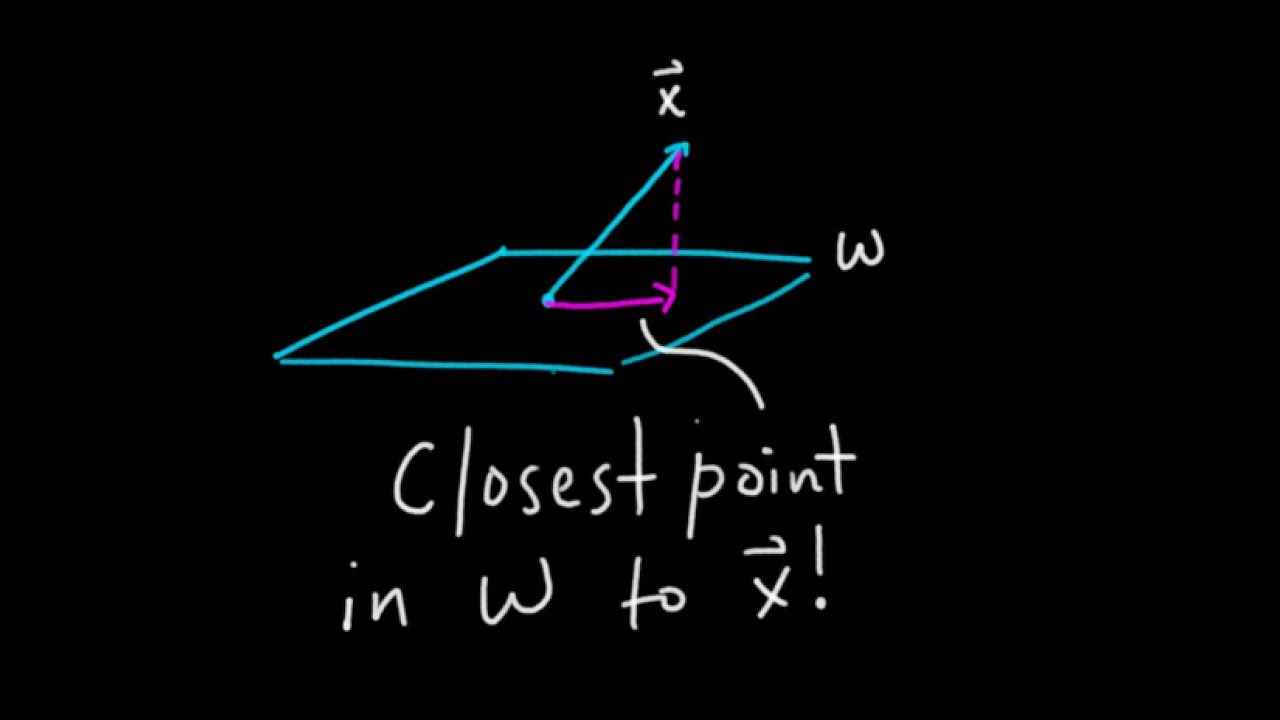 x⃗
W
Closest point
in W to x⃗!